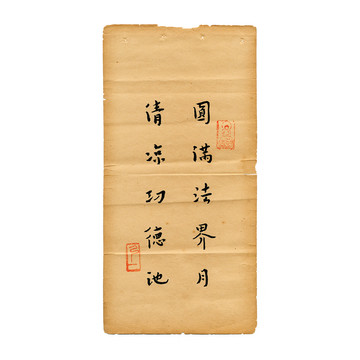 圓滿法界月
清涼功德池